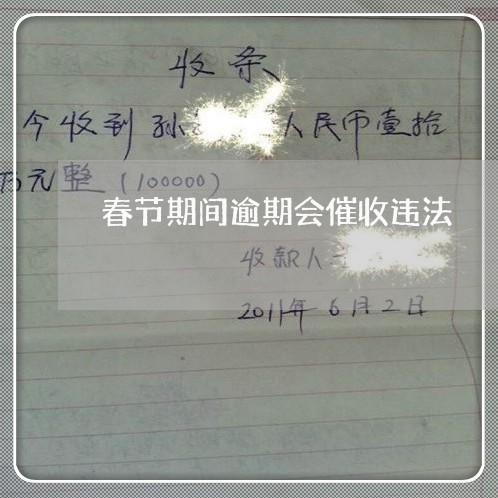 收条
今收到孙 人民币壹拾
万元整（100000）
春节期间逾期会催收违法
收款人
2011年6月2日